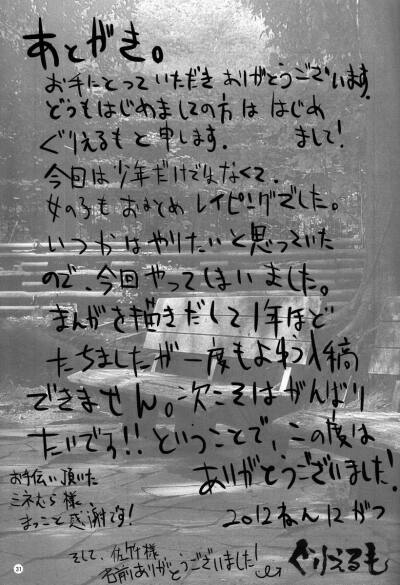 あとがき。
お手にとっていただき ありがとうございます。
どうもはじめましての方は はじめ
まして!
ぐりえるもと申します。
今回は少年だけではなくて、
女の子もおまとめレイピングでした。
いつかはやりたいと思っていた
ので、今回やってしまいました。
まんがを描きだして1年ほど
たちましたが一度もよゆう入稿
できません。次こそはがんばり
たいでう!! ということで、この度は
ありがとうございました!
お手伝い頂いた
ミネむら様、
まっこと感謝です!
2012ねん12がつ
そして、佐竹様、
名前ありがとうございました!
ぐりえるも
31